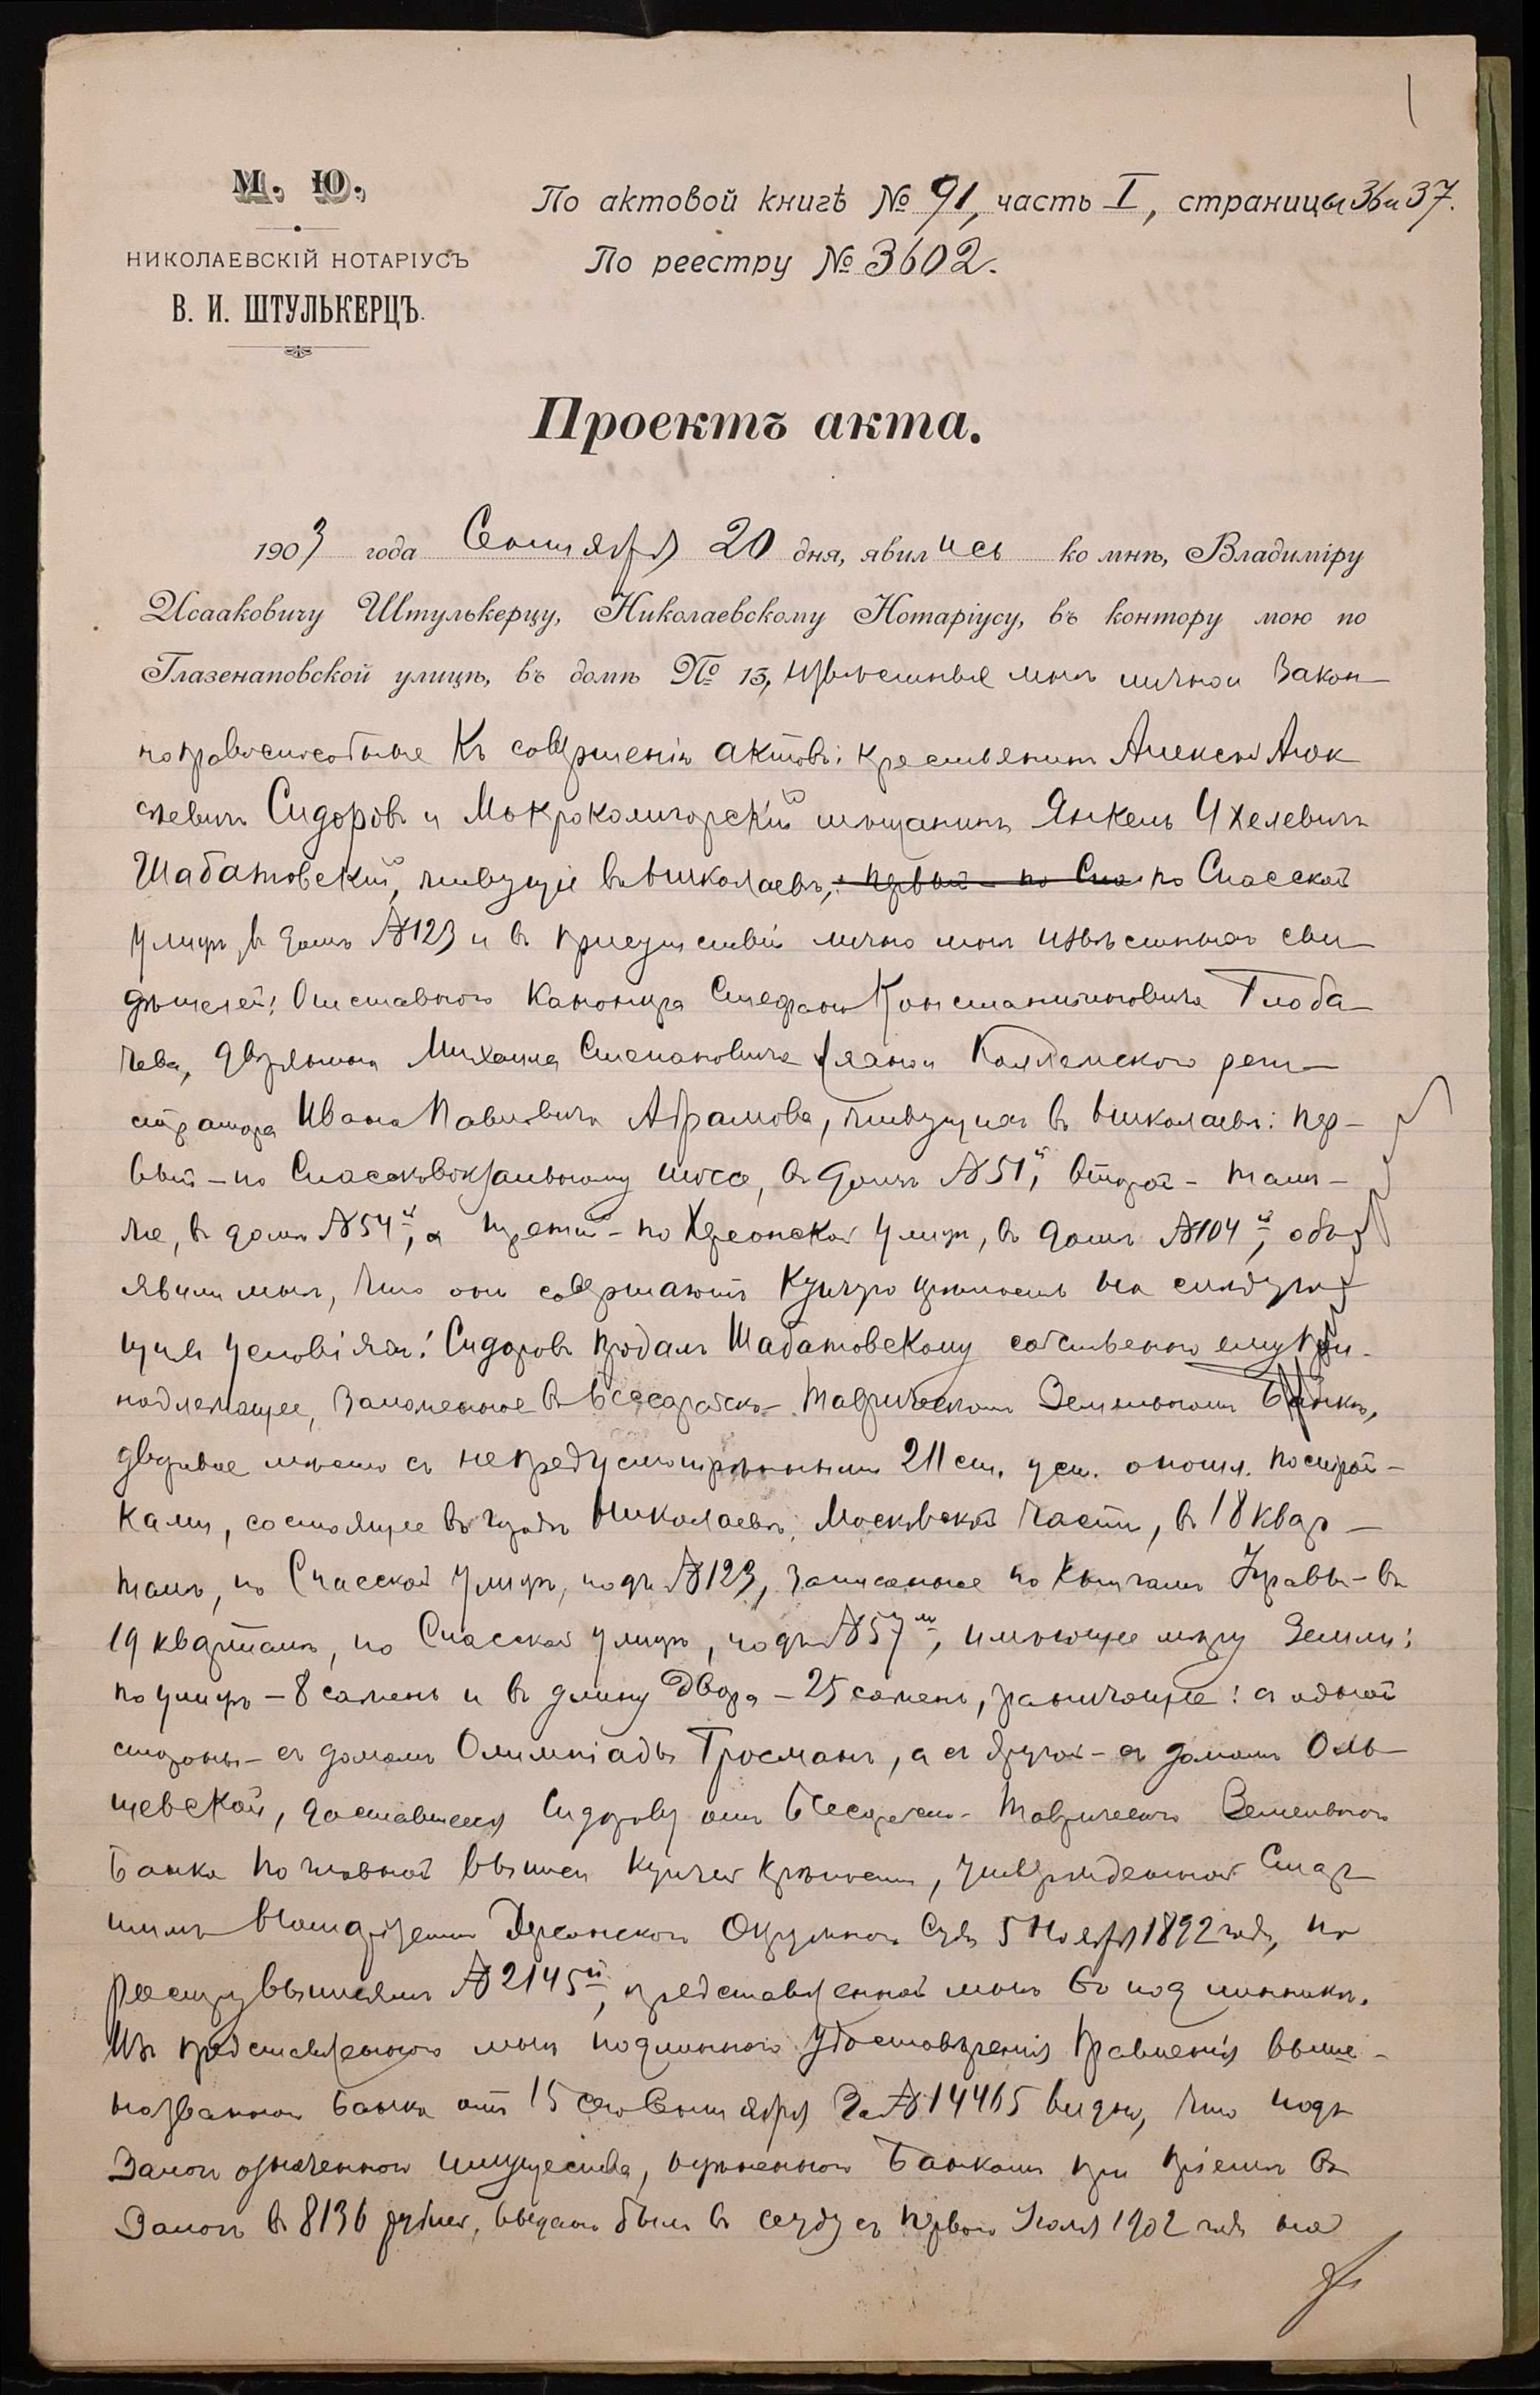 1
М. Ю.
НИКОЛАЕВСКІЙ НОТАРІУСЪ
В. И. ШТУЛЬКЕРЦЪ.
По актовой книгѣ № 91, часть I, страницы 36 и 37.
По реестру № 3602.
Проектъ акта.
1903 года Сентября 20 дня, явились ко мнѣ, Владиміру
Исааковичу Штулькерцу, Николаевскому Нотаріусу, въ контору мою по
Глазенаповской улицѣ, въ домѣ № 13, извѣстные мнѣ лично и закон-
но правоспособные къ совершенію актовъ: крестьянинъ Алексѣй Алек
сѣевичъ Сидоровъ и мѣщанинъ Янкель Ихелевичъ
Шабатовскій, живущіе въ Николаевѣ, первый - по Спа по Спасской
улицѣ, въ домѣ № 123 и въ присутствіи лично мнѣ извѣстныхъ сви-
дѣтелей: отставного канонира Стефана Константиновича Глоба-
чева, дворянина Михаила Степановича и Коллежского реги-
стратора Ивана Павловича Абрамова, живущихъ въ Николаевѣ: пер-
вый - по шоссе, въ домѣ № 51й, второй - тамъ-
же, въ домѣ № 54й, а третій - по Херсонской улицѣ, въ домѣ № 104й, объ-
явили мнѣ, что они совершаютъ купчую крѣпость на слѣдую-
щихъ условіяхъ: Сидоровъ продалъ Шабатовскому собственно ему при-
надлежащее, заложенное въ Бессарабско-Таврическомъ Земельномъ Банкѣ,
дворовое мѣсто съ непредусмотрѣнными 211 ст. уст. о пошл. построй-
ками, состоящее въ городѣ Николаевѣ, Московской части, въ 18 квар-
талѣ, по Спасской улицѣ, подъ № 123, записанное по книгамъ Управы - въ
19 кварталѣ, по Спасской улицѣ, подъ № 57м, имѣющее мѣру земли:
по улицѣ - 8 саженъ и въ длину двора - 25 саженъ, граничащее: съ одной
стороны - съ домомъ Олимпіады Гросманъ, а съ другой - съ домомъ Оль-
шевской, доставшееся Сидорову отъ Бессарабско-Таврическаго Земельнаго
Банка по главной выписи купчей крѣпости, утвержденной Стар-
шимъ Нотаріусомъ Херсонского Окружного Суда 5 Ноября 1892 года, по
реестру выписямъ № 2145й, представленной мнѣ въ подлинникѣ.
Изъ представленного мнѣ подлинного удостовѣренія Правленія выше-
названного Банка отъ 15 сего Сентября за № 14465 видно, что подъ
залогъ означенного имущества, оцѣненного Банкомъ при пріемѣ въ
залогъ въ 8136 рублей, выдана была въ ссуду съ первого Іюля 1902 года на